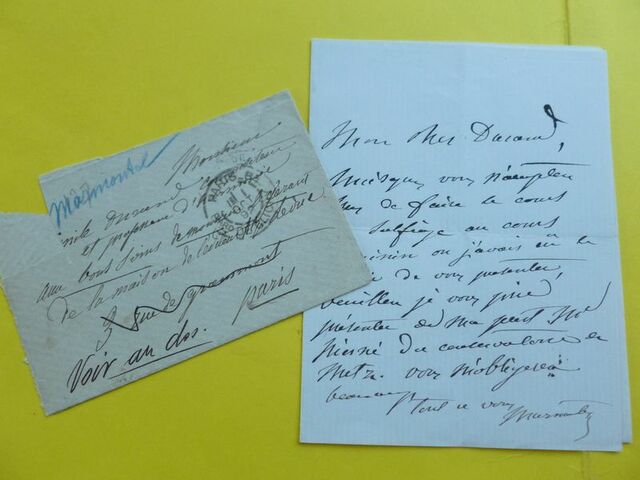 Marmontel
Monsieur
Emile Durand
et professeur d'harmonie
aux bons soins de monsieur
de la maison de
3 rue de grammont
Voir au dos. Paris
PARIS
Mon cher Durand,
Puisque vous
de faire le cours
solfège au cours
ou j'avais eu le
de vous présenter,
veuillez je vous prie
présenter de ma part Mr
Pierné du conservatoire de
Metz. vous m'obligerez
beaucoup
tout à vous Marmontel